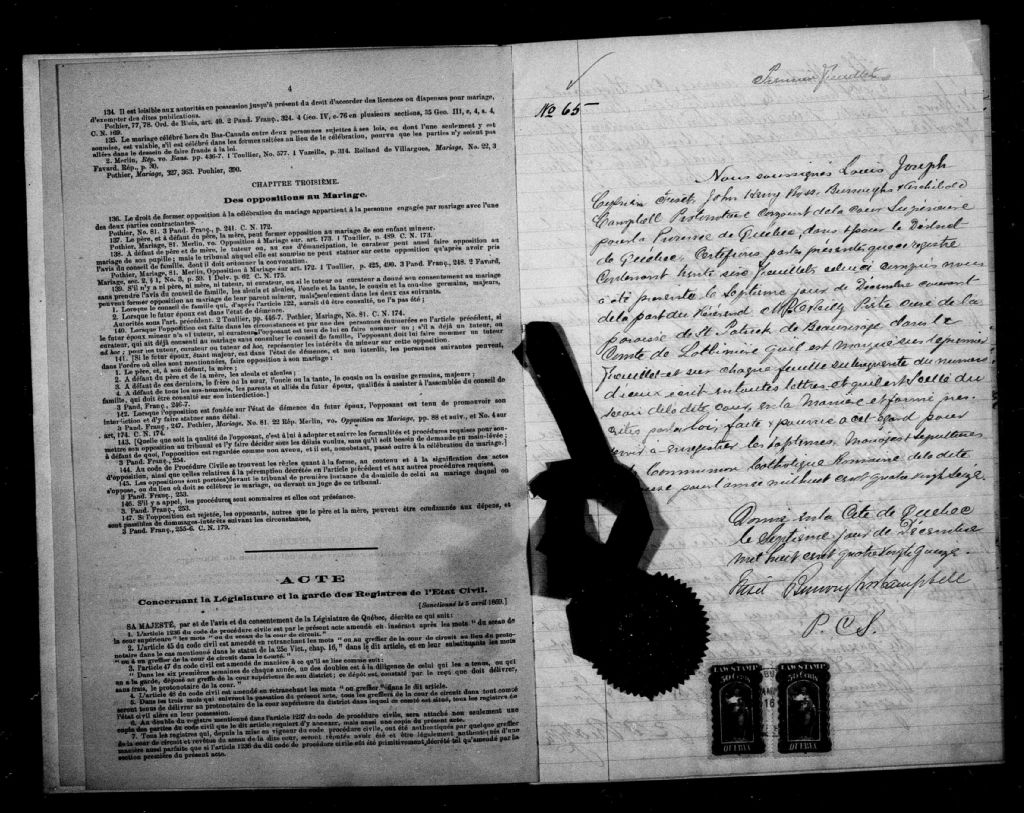 4
134. Il est loisible aux autorités en possession jusqu'à présent du droit d'accorder des licences ou dispenses pour mariage,
d'exempter des dites publications.
Pothier, 77, 78. Ord. de Blois, art. 40. 2 Pand. Franç. 324. 4 Geo. IV, c. 76 en plusieurs sections, 35 Geo. III, c. 4, s. 4,
C. N. 169.
135. Le mariage célébré hors du Bas-Canada entre deux personnes sujettes à ses lois, ou dont l'une seulement y est
soumise, est valable, s'il est célébré dans les formes usitées au lieu de la célébration, pourvu que les parties n'y soient pas
allées dans le dessein de faire fraude à la loi.
2. Merlin, Rép. vo. Bans. pp. 436-7. 1 Toullier, No. 577. 1 Vazeille, p. 314. Rolland de Villargues, Mariage, No. 22, 3
Favard, Rép., p. 30.
Pothier, Mariage, 327, 363. Pouhier, 390.
CHAPITRE TROISIÈME.
Des oppositions au Mariage.
136. Le droit de former opposition à la célébration du mariage appartient à la personne engagée par mariage avec l'une
des deux parties contractantes.
Pothier, No. 81. 3 Pand. Franç., p. 241. C. N. 172.
137. Le père, et à défaut du père, la mère, peut former opposition au mariage de son enfant mineur.
Pothier, Mariage, 81. Merlin, vo. Opposition à Mariage sur. art. 173. 1 Toullier, n. 489. C. N. 173.
138. A défaut de père et de mère, le tuteur ou, au cas d'émancipation, le curateur peut aussi faire opposition au
mariage de son pupille; mais le tribunal auquel elle est soumise ne peut statuer sur cette opposition qu'après avoir pris
l'avis du conseil de famille, dont il doit ordonner la convocation.
Pothier, Mariage, 81. Merlin, Opposition à Mariage sur art. 172. 1 Toullier, p. 425, 490. 3 Pand. Franç. 248. 2 Favard,
Mariage, sec. 2, § 1, No. 3, p. 39. 1 Delv. p. 62. C. N. 175.
139. S'il n'y a ni père, ni mère, ni tuteur, ni curateur, ou si le tuteur ou curateur a donné son consentement au mariage
sans prendre l'avis du conseil de famille, les aïeuls et aïeules, l'oncle et la tante, le cousin et la cousine germains, majeurs,
peuvent former opposition au mariage de leur parent mineur, mais seulement dans les deux cas suivants.
1. Lorsque le conseil de famille qui, d'après l'article 122, aurait dû être consulté, ne l'a pas été;
2. Lorsque le futur époux est dans l'état de démence.
Autorités sous l'art. précédent. 2 Toullier, pp. 446-7. Pothier, Mariage, No. 81. C. N. 174.
140. Lorsque l'opposition est faite dans les circonstances et par une des personnes énumérées en l'article précédent, si
le futur époux mineur n'a ni tuteur, ni curateur, l'opposant est tenu de lui en faire nommer un; s'il a déjà un tuteur, ou
curateur, qui ait déjà consenti au mariage sans consulter le conseil de famille, l'opposant doit lui faire nommer un tuteur
ad hoc; pour les tuteur, curateur ou tuteur ad hoc, représenter les intérêts du mineur sur cette opposition.
141. [Si le futur époux, étant majeur, est dans l'état de démence, et non interdit, les personnes suivantes peuvent,
dans l'ordre où elles sont mentionnées, faire opposition à son mariage:
1. Le père, et, à son défaut, la mère;
2. A défaut de père et de mère, les aïeuls et aïeules;
3. A défaut de ces derniers, le frère ou la sœur, l'oncle ou la tante, le cousin ou la cousine germains, majeurs;
4. A défaut de tous les sus-nommés, les parents et alliés du futur époux, qualifiés à assister à l'assemblée du conseil de
famille, qui doit être consulté sur son interdiction.]
3 Pand. Franç., 246-7.
142. Lorsque l'opposition est fondée sur l'état de démence du futur époux, l'opposant est tenu de promouvoir son
interdiction et d'y faire statuer sans délai.
3 Pand. Franç., 247. Pothier, Mariage, No. 81. 22 Rép. Merlin, vo. Opposition au Mariage, pp. 88 et suiv., et No. 4 sur
art, 174. C. N. 174.
143. [Quelle que soit la qualité de l'opposant, c'est à lui à adopter et suivre les formalités et procédures requises pour sou-
mettre son opposition au tribunal et l'y faire décider sous les délais voulus, sans qu'il soit besoin de demande en main-levée;
à défaut de quoi, l'opposition est regardée comme non avenu, et il est, nonobstant, passé outre à la célébration du mariage.]
3 Pand. Franç. 254.
144. Au code de Procédure Civile se trouvent les règles quant à la forme, au contenu et à la signification des actes
d'opposition, ainsi que celles relatives à la péremption décrétée en l'article précédent et aux autres procédures requises.
145. Les oppositions sont portées devant le tribunal de première instance du domicile de celui au mariage duquel on
s'oppose, ou du lieu où doit se célébrer le mariage, ou devant un juge de ce tribunal.
3 Pand. Franç., 253.
146. S'il y a appel, les procédures sont sommaires et elles ont préséance.
3. Pand. Franç., 253.
147. Si l'opposition est rejetée, les opposants, autres que le père et la mère, peuvent être condamnés aux dépens, et
sont passibles de dommages-intérêts suivant les circonstances,
3 Pand. Franç., 255-6. C. N. 179.
ACTE
Concernant la Législature et la garde des Registres de l'Etat Civil.
[Sanctionné le 5 avril 1869.]
SA MAJESTÉ, par et de l'avis et du consentement de la Législature de Québec, décrète ce qui suit:
1. L'article 1236 du code de procédure civile est par le présent acte amendé en insérant après les mots "du sceau de
la cour supérieure" les mots "ou du sceau de la cour de circuit."
2. L'article 45 du code civil est amendé en retranchant les mots "ou au greffier de la cour de circuit au lieu du proto-
notaire dans le cas mentionné dans le statut de la 25e Vict., chap. 16," dans le dit article, et en leur substituant les mots
"ou à un greffier de la cour de circuit dans le comté."
3. L'article 47 du code civil est amendé de manière à ce qu'il se lise comme suit:
"Dans les six premières semaines de chaque année, un des doubles est à la diligence de celui qui les a tenus, ou qui
en a la garde, déposé au greffe de la cour supérieure de son district; ce dépôt est constaté par le reçu que doit délivrer,
sans frais, le protonotaire de la cour."
4. L'article 48 du code civil est amendé en retranchant les mots "ou greffier" dans le dit article.
5. Dans les trois mois qui suivront la passation du présent acte, tous les greffiers de la cour de circuit dans tout comté
seront tenus de délivrer au protonotaire de la cour supérieure du district dans lequel ce comté est situé, tous les registres de
l'état civil alors en leur possession.
6. Au double du registre mentionné dans l'article 1237 du code de procédure civile, sera attaché non seulement une
copie des parties du code civil que le dit article requiert d'y annexer, mais aussi une copie du présent acte.
7. Tous les registres qui, depuis la mise en vigueur du code de procédure civile, ont été authentiqués par quelque greffier
de la cour de circuit et revêtus du sceau de la dite cour, seront réputés avoir été et être légalement authentiques d'une
manière aussi parfaite que si l'article 1236 du dit code de procédure civile eût été primitivement décrété tel qu'amendé par la
section première du présent acte.
Premier Feuillet
No 65
Nous soussignés Louis Joseph
Cyprien Fiset, John Henry Ross Burroughs & Archibald
Campbell Protonotaire Conjoint de la Cour Supérieure
pour la Province de Québec, dans & pour le District
de Québec, Certifions par les présentes que ce registre
Contenant trente six Feuillets, celui ci compris nous
a été présenté le Septième jour de Décembre courant
de la part du Révérend O'Reilly Ptre Curé de la
paroisse de St Patrick de Beaurivage dans le
Comté de Lotbinière qu'il est marqué sur le premier
Feuillet et sur chaque feuillet subséquent du numéro
d'iceux écrit en toutes lettres, et qu'il est Scellé du
sceau de la dite cour, en la manière et forme pres-
crites par la loi, faite & pourvue à cet égard pour
servir à enregistrer les baptêmes Mariages & sépultures
Communion Catholique Romaine de la dite
pour l'année mil huit cent quatre vingt seize.
Donné en la Cité de Québec
le Septième jour de Décembre
mil huit cent quatre vingt quinze.
Fiset Burroughs & Campbell
P. C. S.
LAW STAMP
50 Cents
QUEBEC
LAW STAMP
50 Cents
QUEBEC